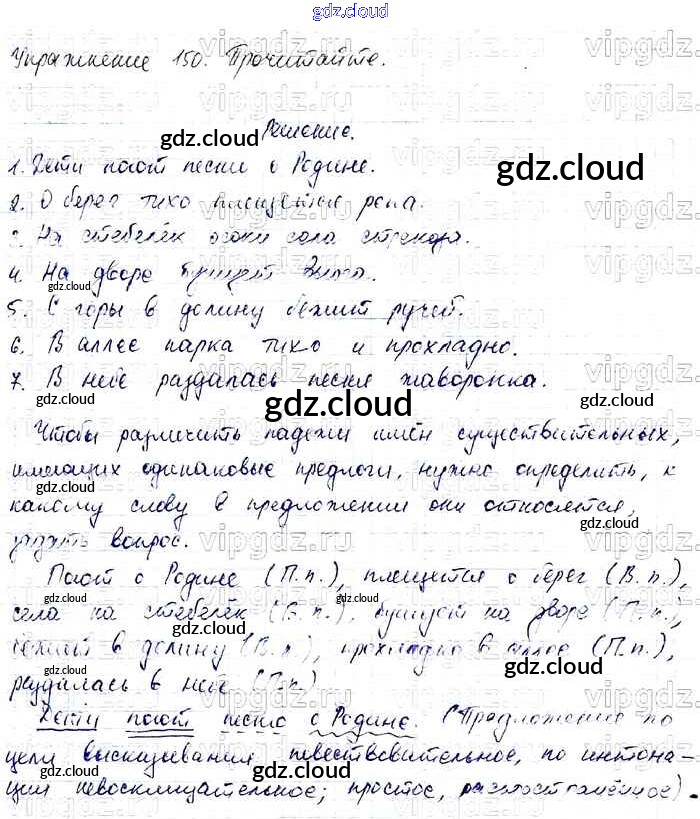 gdz.cloud
Упражнение 150. Прочитайте.
Решение.
1. Дети поют песни о Родине.
2. О берег тихо плещется река.
3. На стебелёк осоки села стрекоза.
4. На дворе бушует зима.
5. С горы в долину бежит ручей.
6. В аллее парка тихо и прохладно.
7. В небе раздалась песня жаворонка.
Чтобы различить падежи имён существительных,
имеющих одинаковые предлоги, нужно определить, к
какому слову в предложении они относятся,
задать вопрос.
Поют о Родине (П.п.), плещется о берег (В.п.),
села на стебелёк (В.п.), бушует на дворе (П.п.),
бежит в долину (В.п.), прохладно в аллее (П.п.),
раздалась в небе (П.п.)
Дети поют песню о Родине. (Предложение по
цели высказывания повествовательное, по интона-
ции невосклицательное; простое, распространённое).